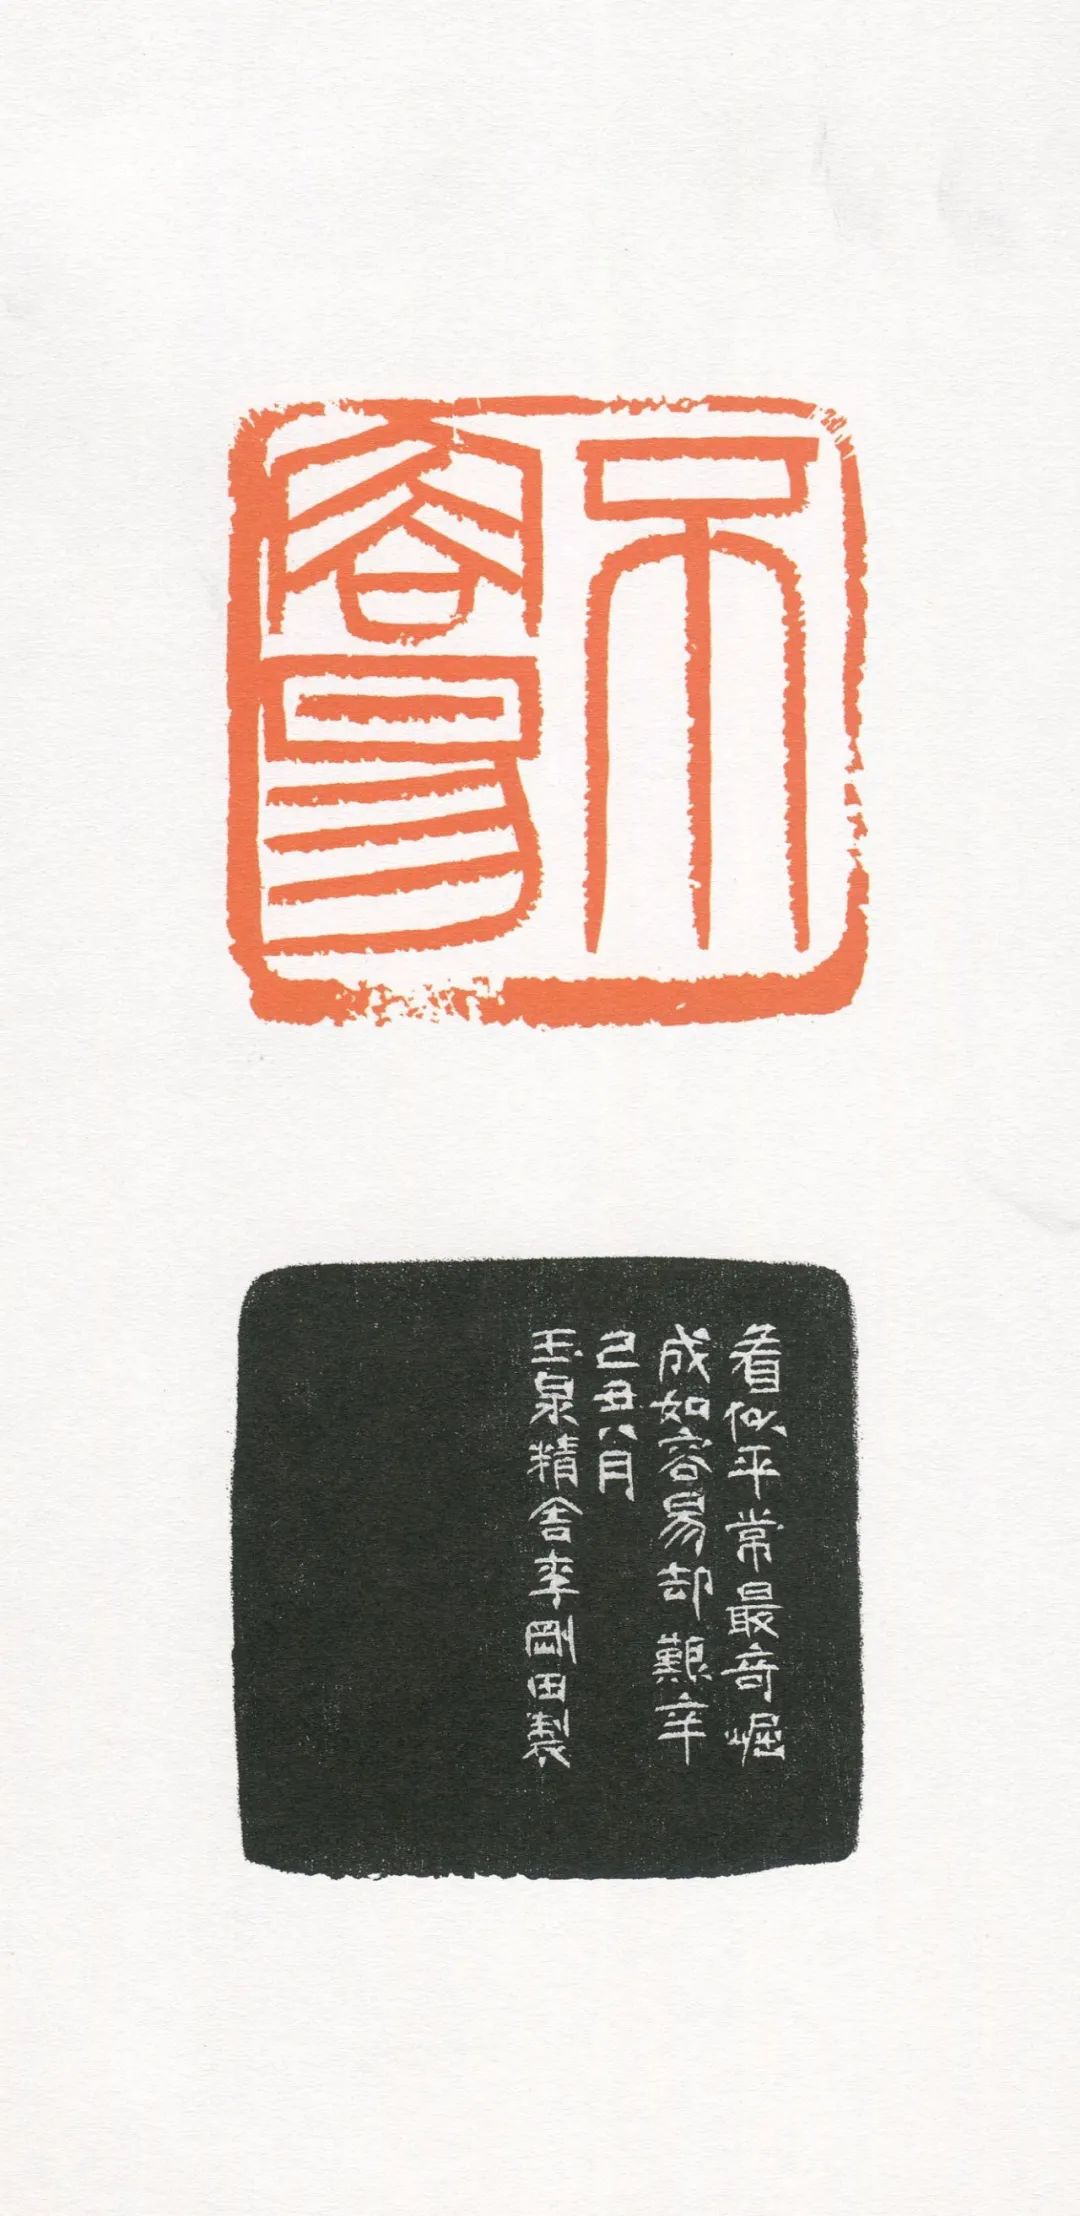 不
容易
看似平常最奇崛
成如容易却艱辛
己丑八月
玉泉精舍李剛田製